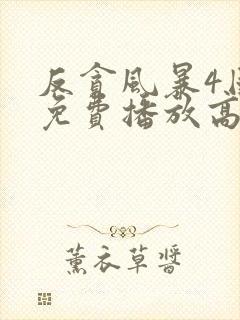 反貪風暴4
免費播放高
薰衣草醬